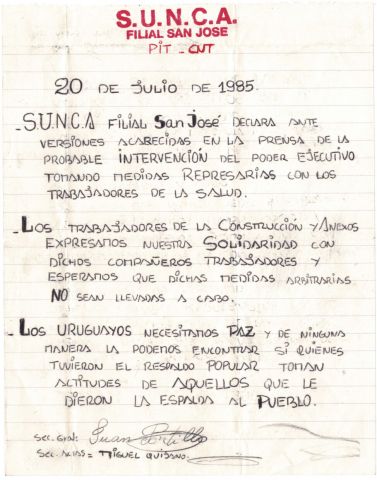 S.U.N.C.A.
FILIAL SAN JOSE
PIT - CNT
20 DE JULIO DE 1985.
-S.U.N.C.A FILIAL SAN JOSÉ DECLARA ANTE
VERSIONES ACAECIDAS EN LA PRENSA DE LA
PROBABLE INTERVENCIÓN DEL PODER EJECUTIVO
TOMANDO MEDIDAS REPRESARIAS CON LOS
TRABAJADORES DE LA SALUD.
-LOS TRABAJADORES DE LA CONSTRUCCIÓN Y ANEXOS
EXPRESAMOS NUESTRA SOLIDARIDAD CON
DICHOS COMPAÑEROS TRABAJADORES Y
ESPERAMOS QUE DICHAS MEDIDAS ARBITRARIAS
NO SEAN LLEVADAS A CABO.
-LOS URUGUAYOS NECESITAMOS PAZ Y DE NINGUNA
MANERA LA PODEMOS ENCONTRAR SI QUIENES
TUVIERON EL RESPALDO POPULAR TOMAN
ACTITUDES DE AQUELLOS QUE LE
DIERON LA ESPALDA AL PUEBLO.
SEC. GRAL: Juan Portillo
SEC. ACTAS = MIGUEL QUIJANO